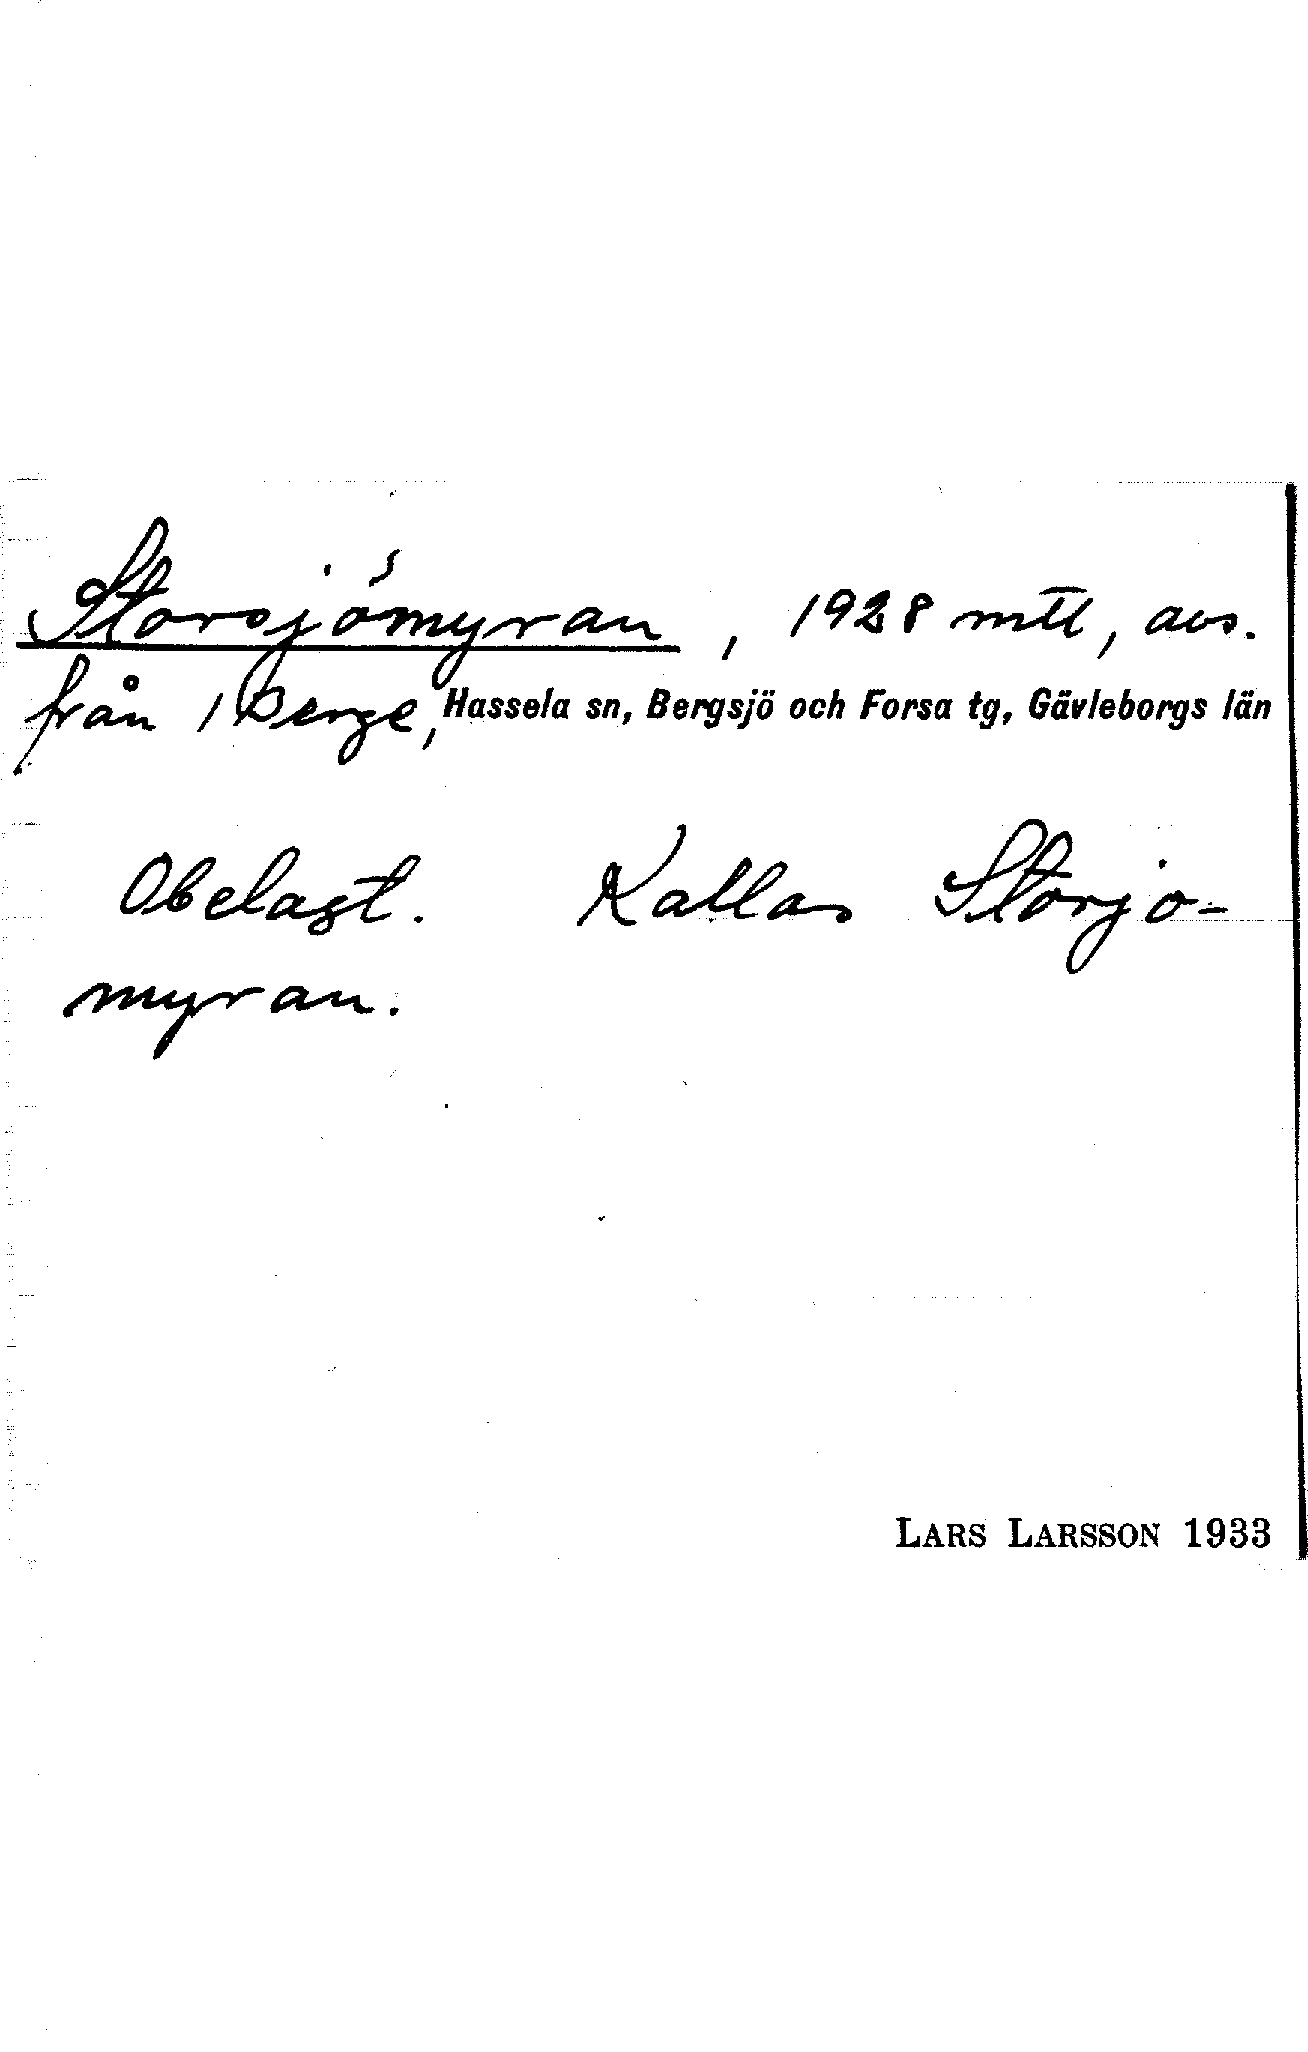 Storsjömyran, 1928 mtl, avs.
från 1 Berge, Hassela sn, Bergsjö och Forsa tg, Gävleborgs län
Obelagt. Kallas Storjo-
myran.
LARS LARSSON 1933